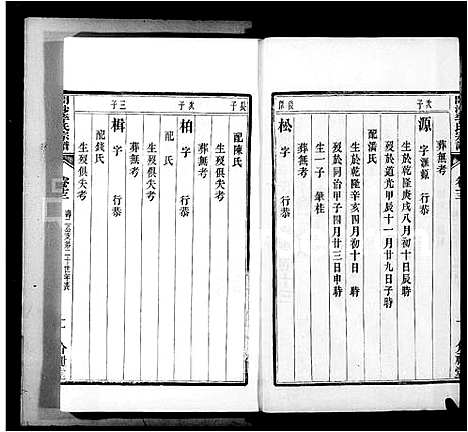 次子
葬無考
源 字滙源 行恭
生於乾隆庚戌八月初十日辰時
歿於道光甲辰十一月廿九日子時
配潘氏
生於乾隆辛亥四月初十日 時
歿於同治甲子四月廿三日申時
生一子 肇桂
松 字 行恭
葬無考
長子
配陳氏
生歿俱失考
葬無考
次子
柏 字 行恭
配 氏
生歿俱失考
葬無考
三子
楫 字 行恭
配錢氏
生歿俱失考
葬無考
卷十三